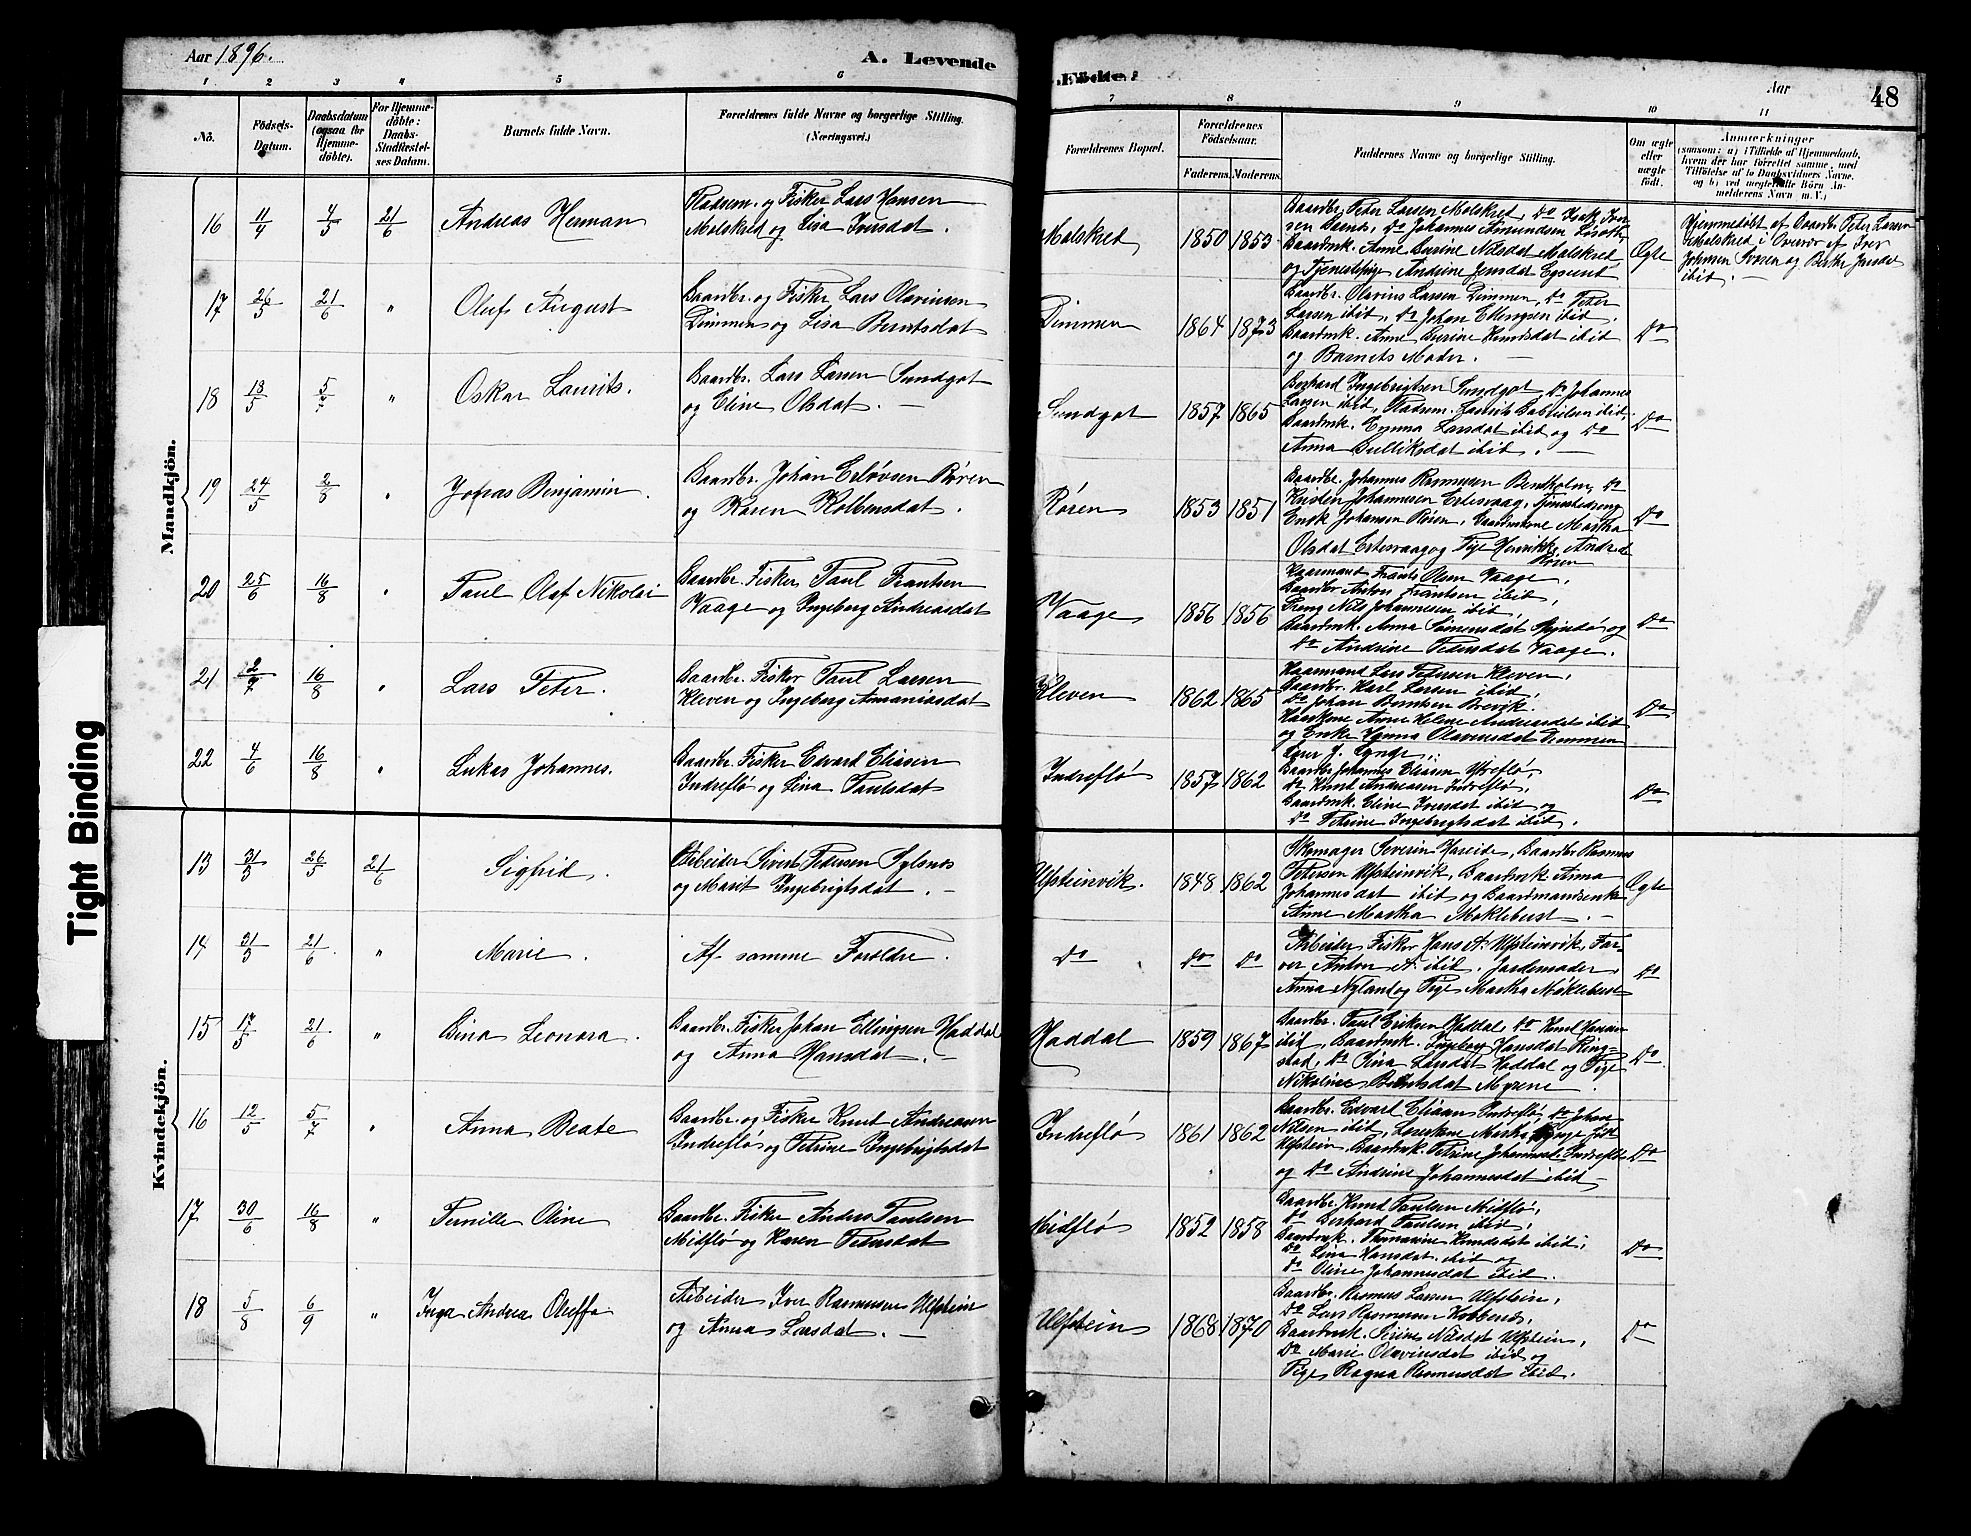 Aar 1896.
A. Levende
Fødte.
Aar
48
1 2 3 4 5 6
7 8 9 10 11
No.
Fødsels-Datum.
Daabsdatum (ogsaa for Hjemmedøbte).
For Hjemmedøbte: Daabs-Stadfæstelses Datum.
Barnets fulde Navn.
Forældrenes fulde Navne og borgerlige Stilling. (Næringsvei.)
Forældrenes Bopæl.
Forældrenes Fødselsaar.
Faderens. Moderens.
Faddernes Navne og borgerlige Stilling.
Om ægte eller uægte født.
Anmærkninger
(saasom: a) i Tilfælde af Hjemmedaab, hvem der har forrettet samme, med Tilføielse af to Daabsvidners Navne. og b) ved uægtefødte Börn Anmelderens Navn m. V.)
Mandkjön.
16 11/4 4/5 21/6 Andreas Herman
Pladsm. og Fisker Lars Hansen
Molskred og Lisa Iversdat.
Molskred 1850 1853
Gaardbr. Peter Larsen Molskred, Do Isak Iver-
sen, Do Johannes Amundsen
Gaardmk. Anne Gurine Nilsdat Molskred
og Tjenestepige Andrine Jensdat Egsund
Ægte
Hjemmedøbt af Gaardbr Peter Larsen
Molskred i Overvær af Iver
Johnsen og Berthe Jensdat
ibid.
17 26/5 21/6 " Oluf August
Gaardbr. og Fisker Lars Olavinsen
Dimmen og Lisa Berntsdat
Dimmen 1864 1873
Gaardbr. Olavius Larsen Dimmen, Do Peter
Larsen ibid, Do Johan Ellingsen ibid.
Gaardmk. Anne Gurine Knudsdat ibid
og Barnets Moder. —
Do
18 13/5 5/7 " Oskar Laurits.
Gaardbr. Lars Larsen Sundgot
og Eline Olsdat. —
Sundgot 1857 1865
Gerhard Ingebrigtsen Sundgot, Do Johannes
Larsen ibid, Pladsm. ibid,
Gaardmk. Emma Larsdat ibid og Do
Anna Gulliksdat ibid. —
Do
19 24/5 2/8 " Jonas Benjamin.
Gaardbr. Johan Erløvsen Røren
og Karen Kolbensdat.
Røren 1853 1851
Gaardbr. Johannes Rasmussen Bendholm, Do
Kristen Johannesen Ertesvaag, Tjenestedreng
Enok Johansen Røren, Gaardmkone Martha
Olsdat Ertesvaag og Pige Henrikke
Røren
Do
20 25/6 16/8 " Paul Olaf Nikolai
Gaardbr. Fisker Paul Frantsen
Vaage og Ingeborg Andreasdat
Vaage 1856 1856
Kaarmand Frants Olsen Vaage,
Gaardbr Anton Frantsen ibid,
Dreng Nils Johannesen ibid,
Gaardmk. Anna og
Do Andrine Pedersdat Vaage.
Do
21 2/7 16/8 " Lars Peter.
Gaardbr. Fisker Paul Larsen
Kleven og Ingeborg Ananiasdat
Kleven 1862 1865
Kaarmand Lars Pedersen Kleven,
Gaardbr. Karl Larsen ibid,
Do Johan Berntsen Brevik.
Kaarkone Anne Helene Andreasdat ibid
og Enke Hanna Olavinsdat Dimmen
Do
22 4/6 16/8 " Lukas Johannes.
Gaardbr. Fisker Edvard Eliasen
Indreflø og Lina Paulsdat
Indreflø 1857 1862
Lærer J. Lyngs,
Gaardbr Johannes Eliasen Ytreflø,
Do Knud Andreasen Indreflø,
Gaardmk. Eline Iversdat ibid og
Do Petrine Ingebrigtsdat ibid.
Do
Kvindekjön.
13 31/3 26/5 21/6 Sigfrid.
Arbeider Sivert Pedersen Sylsnes
og Marit Ingebrigtsdat. —
Ulfsteinvik. 1848 1862
Skomager Severin Hareide, Gaardbr Rasmus
Petersen Ulfsteinvik, Gaardmk Anna
Johannesdat ibid og Gaardmandsenke
Anne Martha Moklebust. —
Ægte
14 31/3 21/6 " Marie.
Af samme Foreldre.
Do Do Do
Arbeider Fisker Hans A. Ulfsteinvik, Far-
ver Anton A. ibid. Jordemoder
Anna Nyland og Pige Martha Møklebust
Do
15 17/5 21/6 " Gina Leonora.
Gaardbr. Fisker Johan Ellingsen Haddal
og Anna Hansdat. —
Haddal 1859 1867
Gaardbr. Paul Eriksen Haddal, Do Knud Hansen
ibid, Gaardmk. Ingeborg Hansdat Ring-
stad, Do Lina Larsdat Haddal og Pige
Nikoline Berntsdat Myrene
Do
16 12/5 5/7 " Anna Beate
Gaardbr. og Fisker Knut Andreasen
Indreflø og Petrine Ingebrigtsdat
Indreflø 1861 1862
Gaardbr. Edvard Eliasen Indreflø, Do Johan
Nilsen ibid, Lærerkone Martha
Ulfstein, Gaardmk. Petrine Johannesd. Indreflø
og Do Andrine Johannesdat ibid
Do
17 30/6 16/8 " Pernille Oline
Gaardbr. Fisker Anders Paulsen
Midflø og Karen Pedersdat
Midflø 1852 1858
Gaardbr. Knud Paulsen Midflø,
Do Gerhard Paulsen ibid,
Gaardmk. Thomasine Knudsdat ibid,
Do Lina Hansdat ibid og
Do Oline Johannesdat ibid.
Do
18 5/8 6/9 " Inga Andrea Oluffa
Arbeider Iver Rasmussen Ulfstein
og Anna Larsdat. —
Ulfstein 1868 1870
Gaardbr. Rasmus Larsen Ulfstein,
Do Lars Rasmussen
Gaardmk. Sirine Nilsdat Ulfstein,
Do Marie Olavinsdat ibid og
Pige Ragna Rasmusdat ibid.
Do
Tight Binding